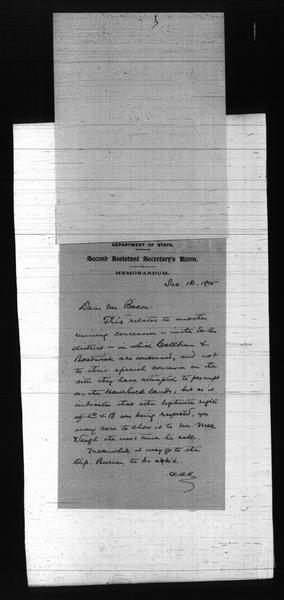 DEPARTMENT OF STATE.
Second Assistant Secretary's Room.
MEMORANDUM.
Dec. 12, 1905
Dear Mr. Bacon
This relates to another
mining concession - in the
district - in which Collbran &
Bostwick are concerned, and not
to their special concession on the
site they have attempted to preempt
on the Household lands; but as it
indicates that the legitimate rights
of C & B are being respected, you
may care to show it to Mr. Mac
Veagh the next time he calls.
Meanwhile it may go to the
Dip. Bureau to be
AAA